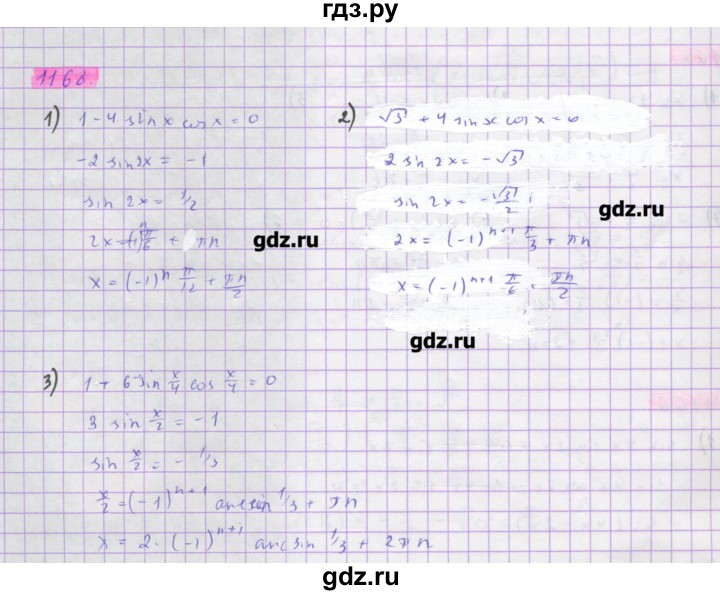 гдз.ру
1168.
1) 1 - 4 sin x cos x = 0
-2 sin 2x = -1
sin 2x = 1/2
2x = (-1)^n π/6 + πn
x = (-1)^n π/12 + πn/2
2) √3 + 4 sin x cos x = 0
2 sin 2x = -√3
sin 2x = -√3/2 ;
2x = (-1)^{n+1} π/3 + πn
x = (-1)^{n+1} π/6 + πn/2
gdz.ru
gdz.ru
gdz.ru
3) 1 + 6 sin x/4 cos x/4 = 0
3 sin x/2 = -1
sin x/2 = -1/3
x/2 = (-1)^{n+1} arcsin 1/3 + πn
x = 2 · (-1)^{n+1} arcsin 1/3 + 2πn
gdz.ru
gdz.ru